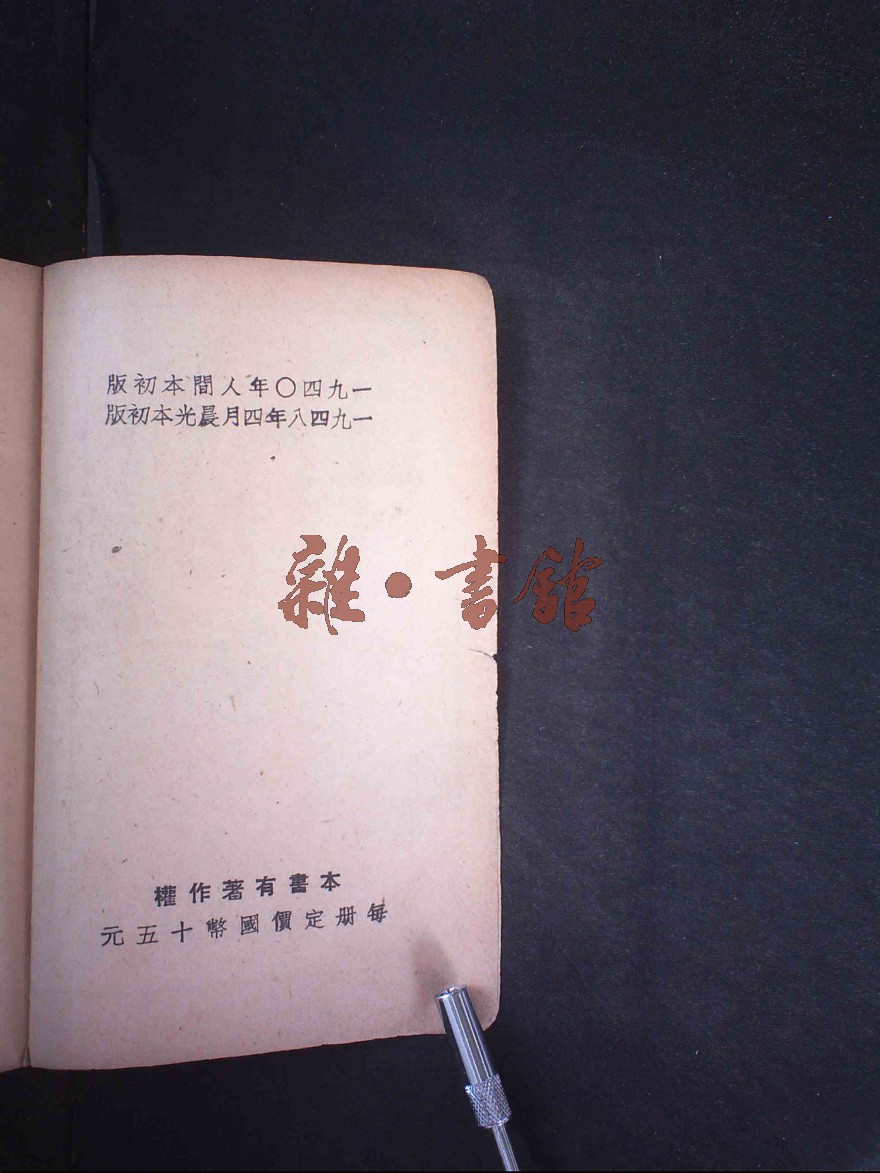 一九四〇年人間本初版
一九四八年四月晨光本初版
雜·書館
本書有著作權
每册定價國幣十五元